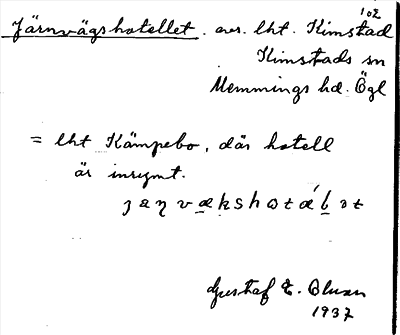 102
Järnvägshotellet. avs. lht. Kimstad
Kimstads sn
Memmings hd. Ögl
= lht Kämpebo, där hotell
är inrymt.
Gustaf E.
1937